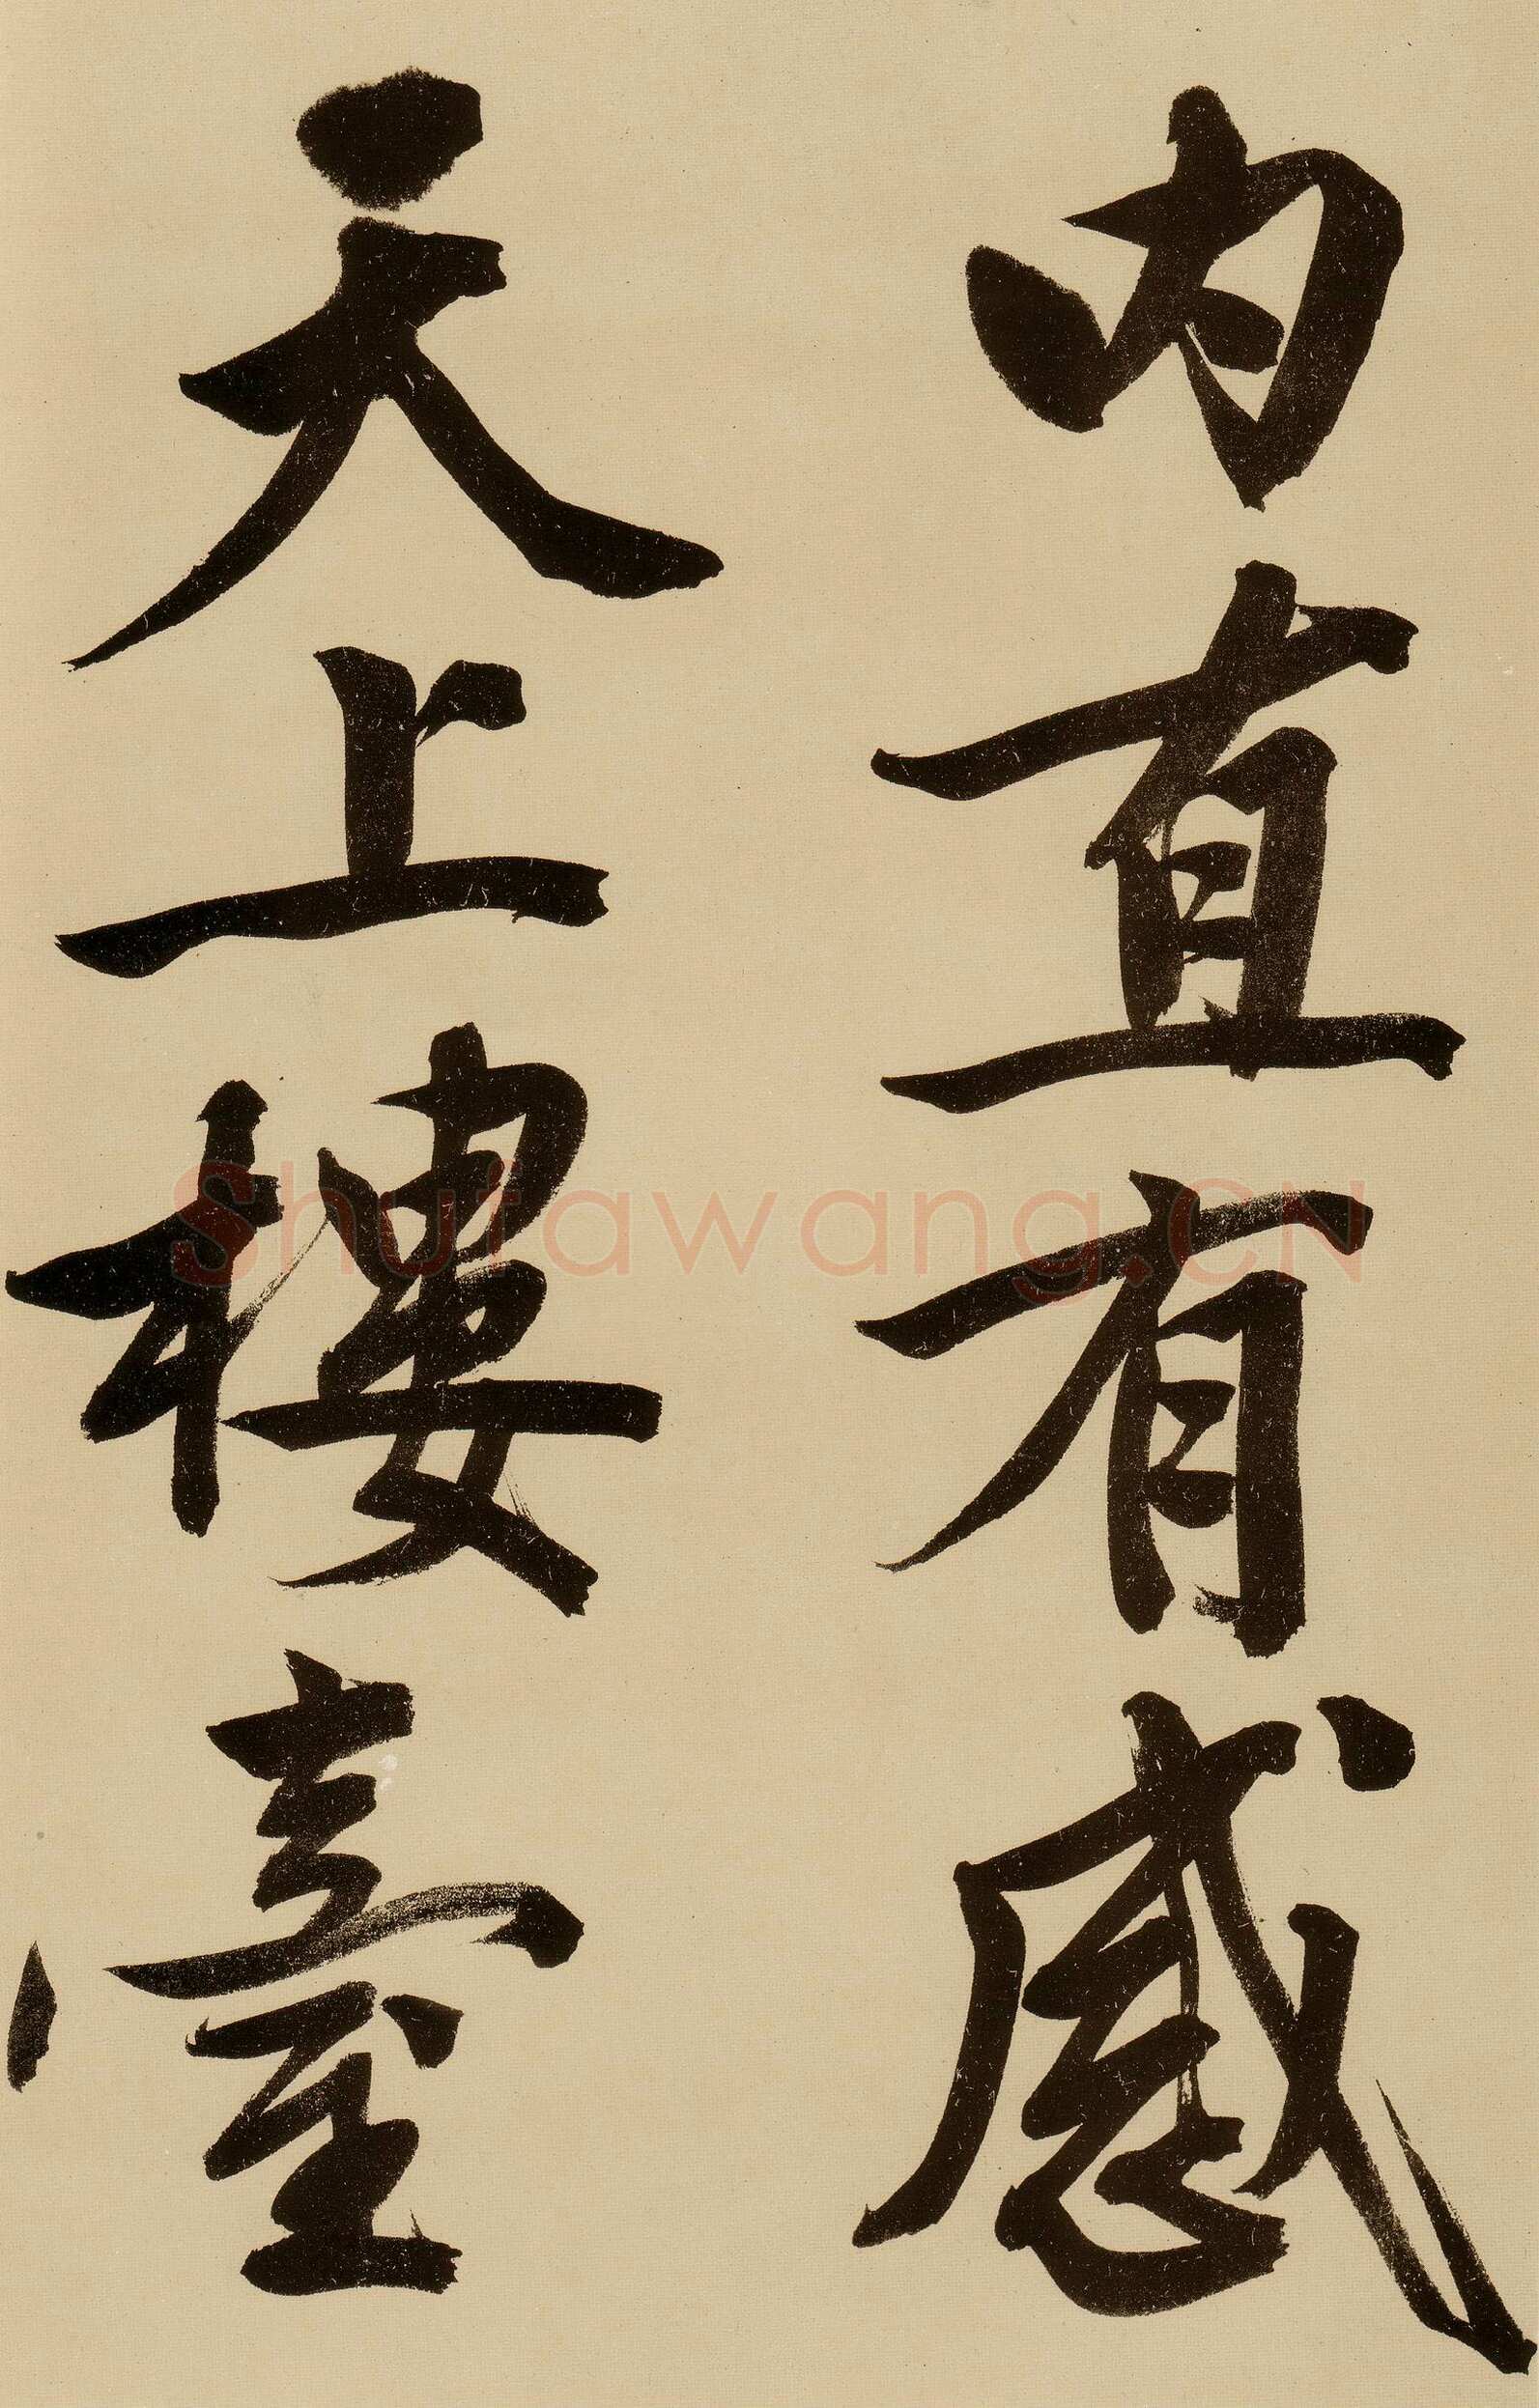 内直有感
天上樓臺
Shufawang.CN